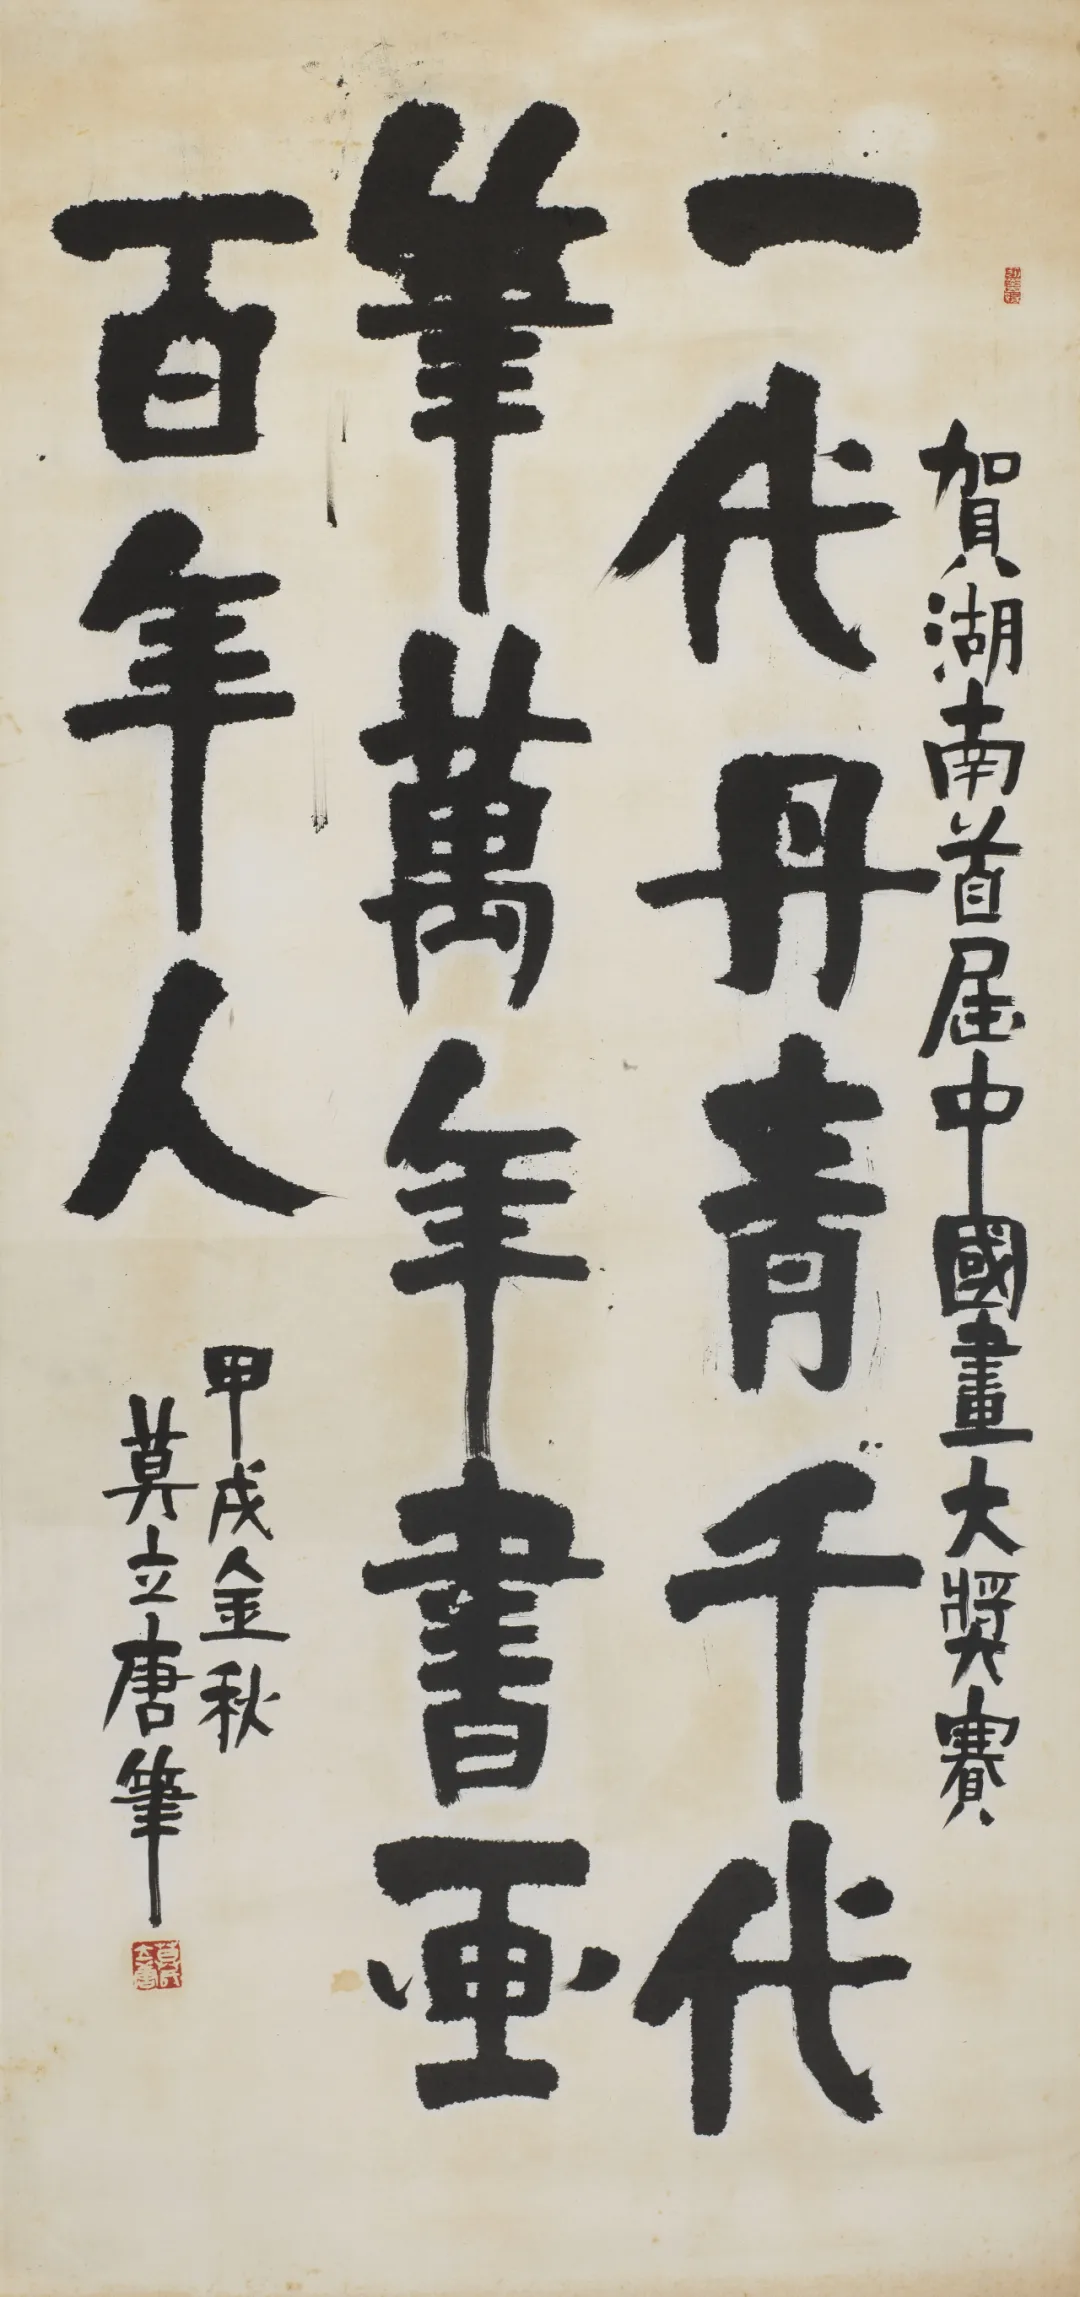 賀湖南首屆中國畫大獎賽
一代丹青千代
筆萬年書画
百年人
甲戌金秋
莫立唐筆
莫氏
立唐